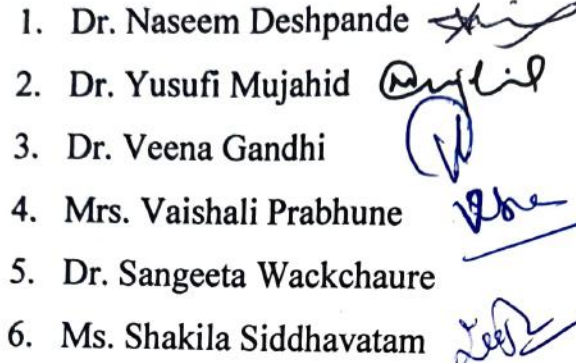 1. Dr. Naseem Deshpande
2. Dr. Yusufi Mujahid
3. Dr. Veena Gandhi
4. Mrs. Vaishali Prabhune
5. Dr. Sangeeta Wackchaure
6. Ms. Shakila Siddhavatam